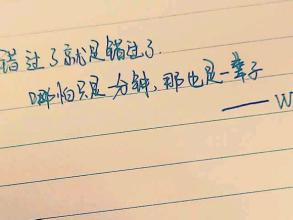 错过了就是错过了.
哪怕只是一分钟,那也是一辈子
—— W